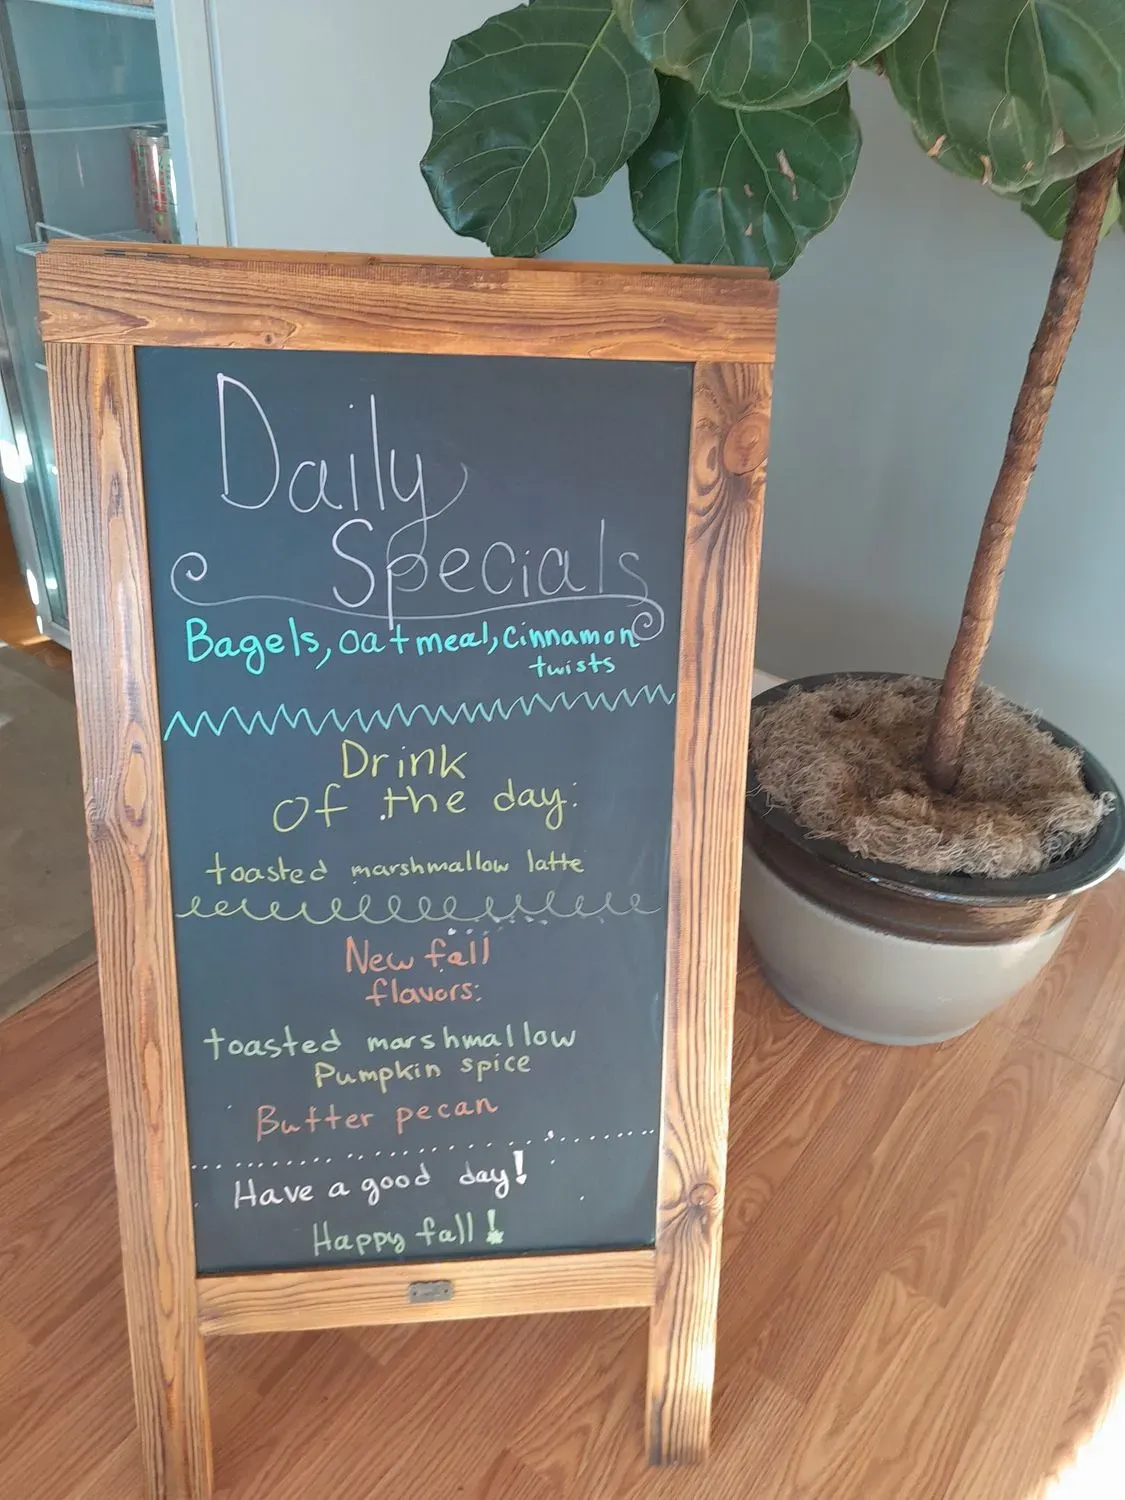 Daily
Specials
Bagels, oatmeal, cinnamon
twists
Drink
of the day:
toasted marshmallow latte
New fall
flavors:
toasted marshmallow
Pumpkin spice
Butter pecan
Have a good day!
Happy fall!